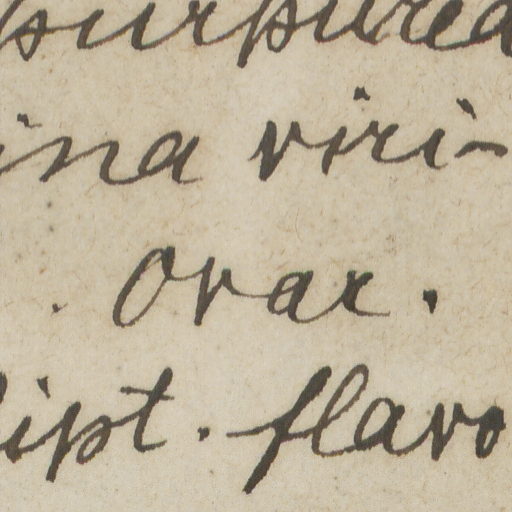 purpurea
ina viri-
. Ovar.
ipt. flavo